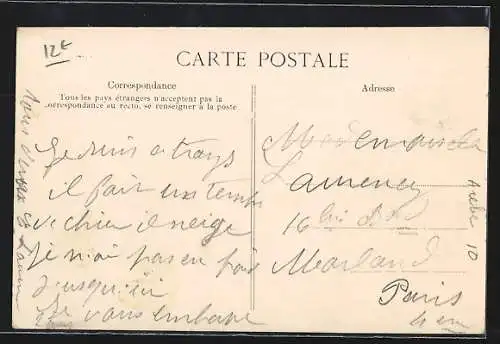 12€
CARTE POSTALE
Correspondance
Tous les pays étrangers n'acceptent pas la
correspondance au recto, se renseigner à la poste
Adresse
Je suis a
il fait un temps
de chien il neige
Je n'ai pas eu froid
Jusqu'ici
Je vous embrasse
Mademoiselle
Laurency
16 bis Bd
Morland
Paris
4 em
10